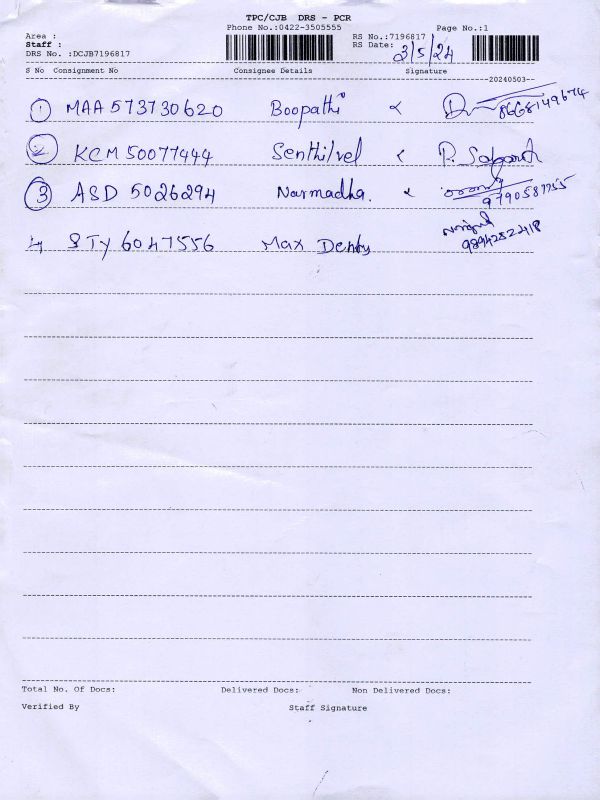 TPC/CJB DRS - PCR
Phone No.:0422-3505555 Page No.:1
Area : RS No.:7196817
Staff : RS Date: 3/5/24
DRS No. :DCJB7196817
S No Consignment No Consignee Details Signature
20240503
1 MAA 573730620 Boopathi 8668149674
2 KCM 50077444 Senthilvel
3 ASD 5026294 Narmadha. 9790587755
4 STY 6047556 Max 9894252418
Total No. Of Docs: Delivered Docs: Non Delivered Docs:
Verified By Staff Signature